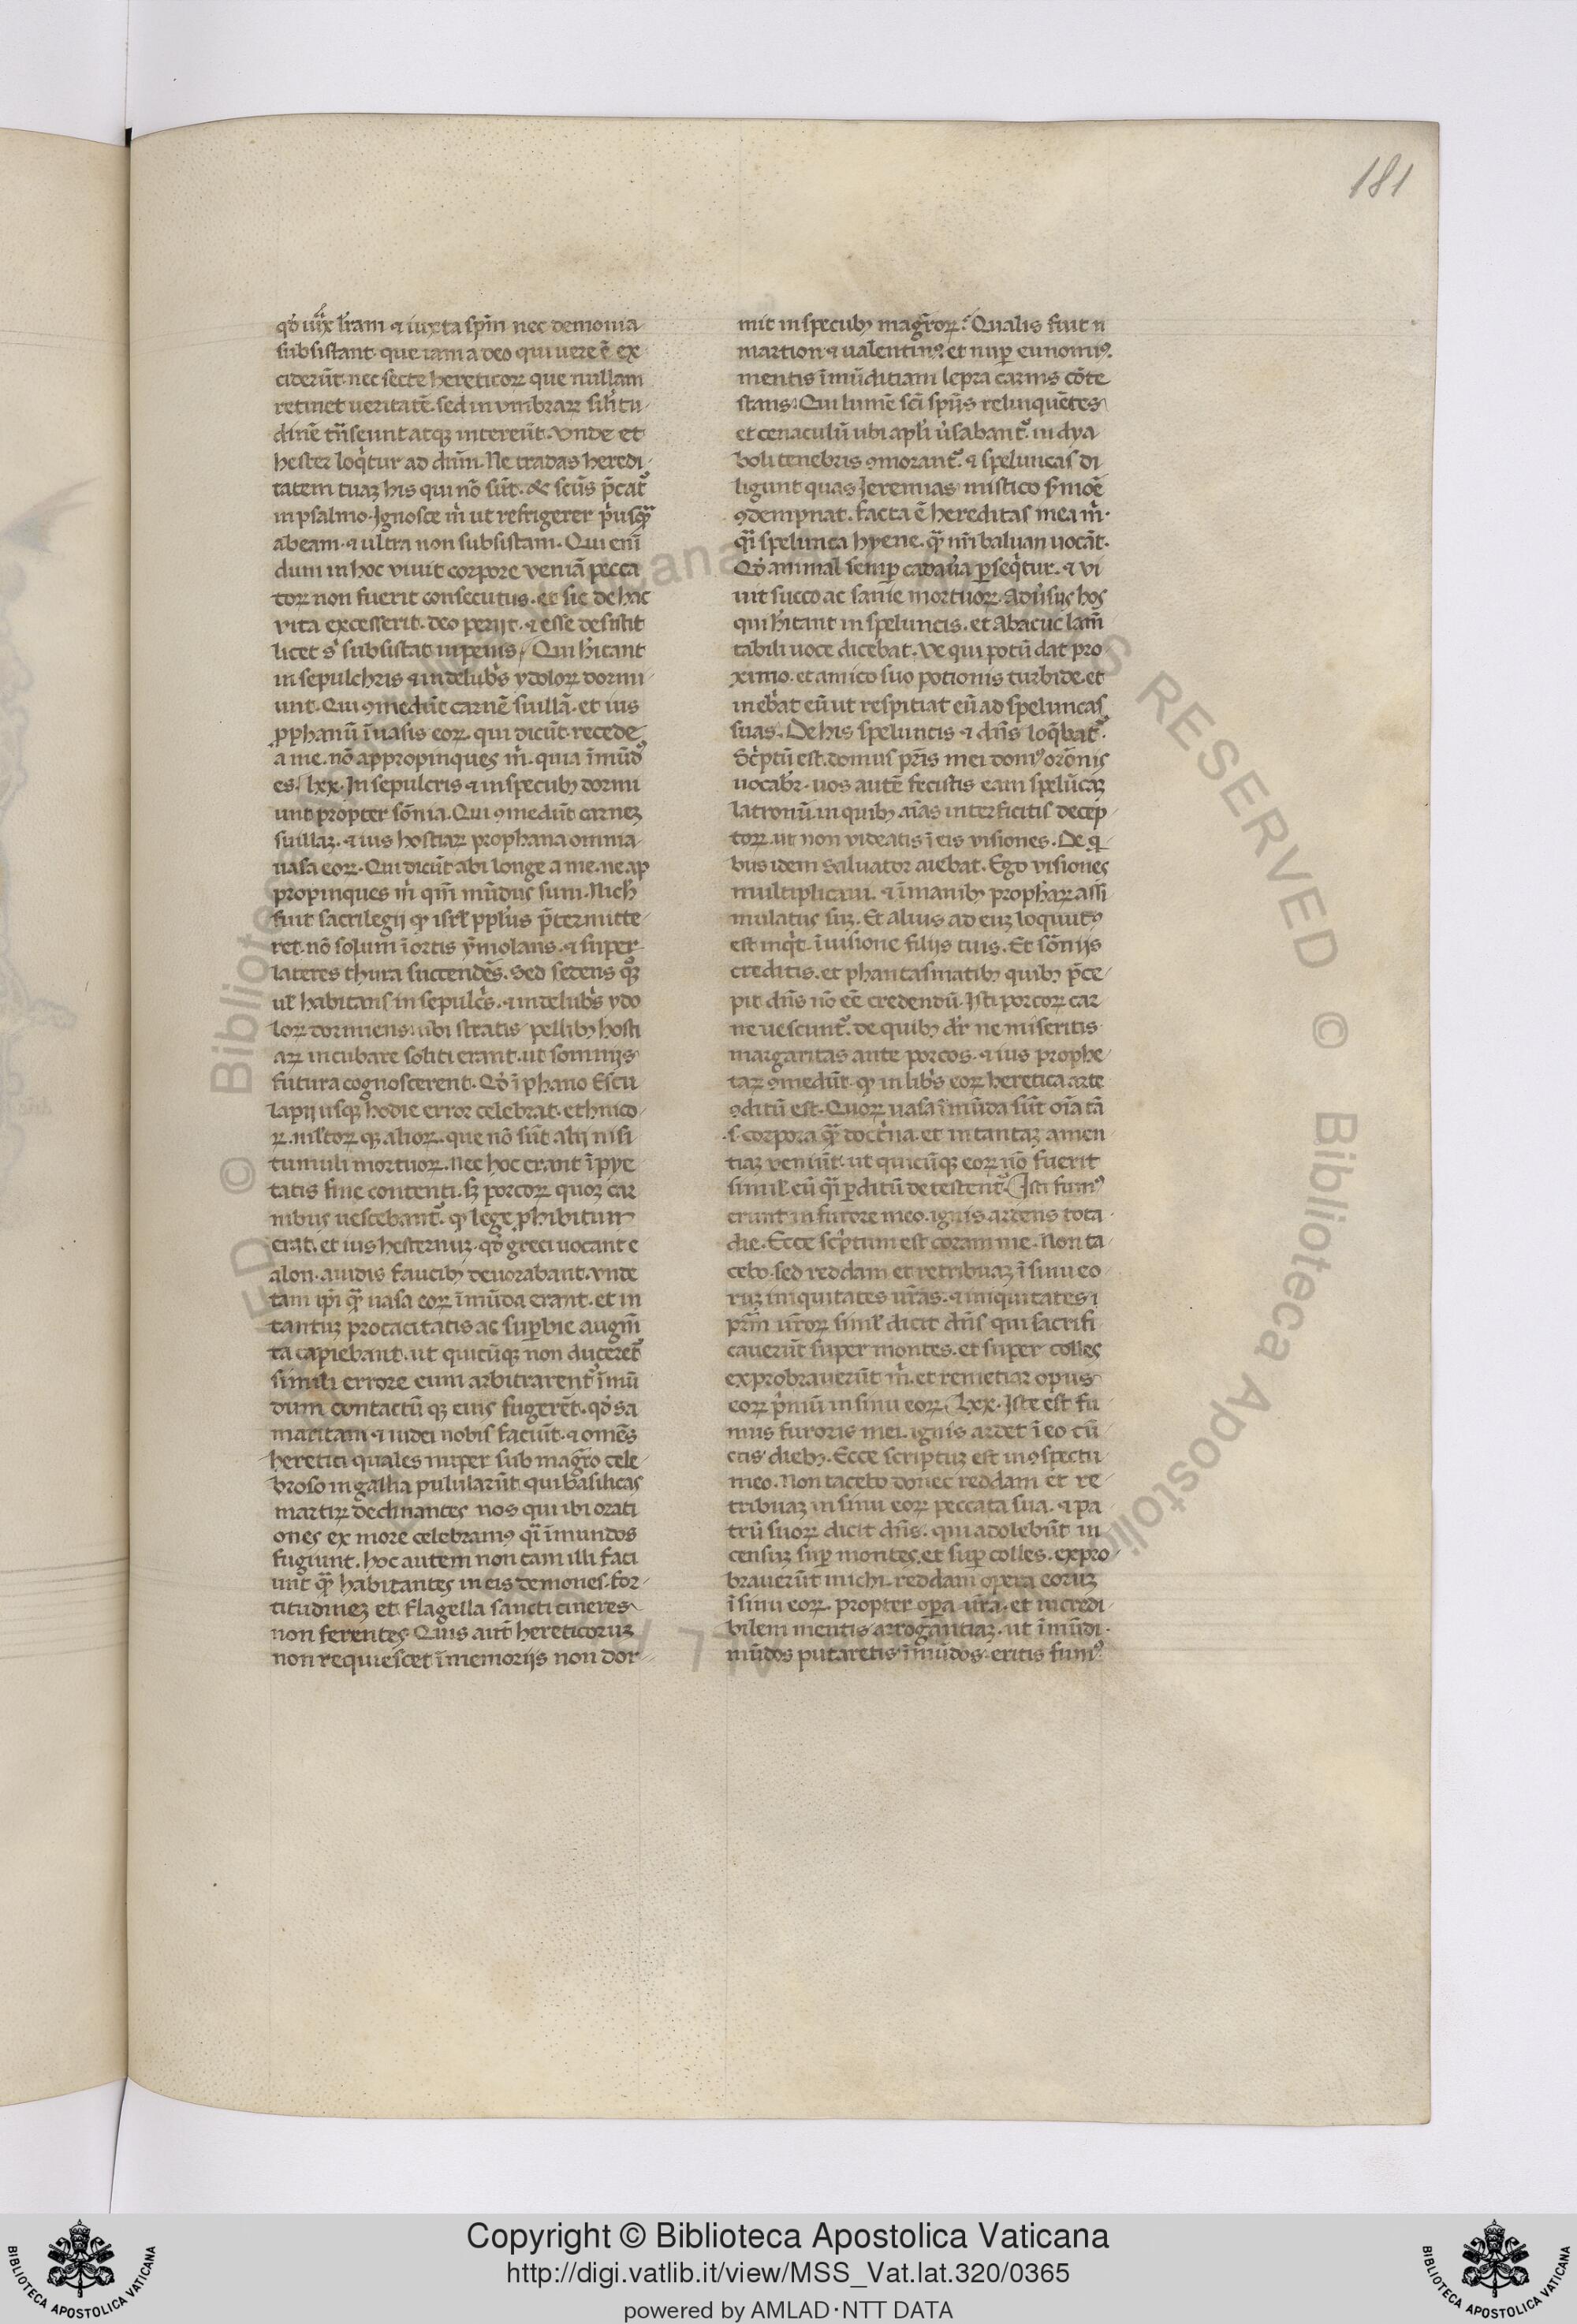 181
qđ iuxͣ lr̃am ⁊ iuxta sp̃m nec demonia
subsistant que iam a deo qui uere ẽ ex
ciderũt. nec secte hereticoꝝ que nullam
retinet ueritatẽ. sed in vmbraꝝ sil̃itu
dinẽ tñseunt atqꝫ intereũt. vnde et
hester loqͥtur ad dñm. Ne tradas heredi
tatem tuaꝫ his qui nõ sũt. & sc̃us p̃cat᷑
in psalmo. Ignosce m̃ ut refrigerer pͥusqᷓ
abeam. ⁊ ultra non subsistam. Qui eni᷑
dum in hoc viuit corpore veniã pecca
toꝝ non fuerit consecutus. et sic de hac
vita excesserit. deo perijt. ⁊ esse desistit
licet sͥ subsistat in penis. Qui hĩtant
in sepulchris ⁊ in delubͥs ydoloꝝ dormi
unt. Qui ꝯmedũt carnẽ suillã. et ius
ꝓphanũ ĩ uasis eoꝝ. qui dicũt recede
a me. nõ appropinques m̃. quia ĩmũd⁹
es. lxx. In sepulcris ⁊ in specubꝫ dormi
unt propter sõnia. Qui ꝯmedũt carneꝫ
suillaꝫ. ⁊ ius hostiaꝝ prophana omnia
uasa eoꝝ. Qui dicũt abi longe a me. ne ap
propinques m̃ qm̃ mũdus sum. Nich̃
fuit sacrilegij qͦ isrl̃ ppl̃us p̃termitte
ret. nõ solum ĩ ortis ymolans. ⁊ super
lateres thura succendẽs. Sed sedens qͦqꝫ
ul̃ habitans in sepulcͥs. ⁊ in delubͥs ydo
loꝝ dormiens. ubi stratis pellibꝫ hosti
aꝝ incubare soliti erant. ut somnijs
futura cognoscerent. Qđ ĩ phano Escu
lapij usqꝫ hodie error celebrat. ethnico
ꝝ. multoꝝ qꝫ alioꝝ. que nõ sũt alij nisi
tumuli mortuoꝝ. Nec hoc erant ĩpye
tatis fine contenti. sꝫ porcoꝝ quoꝝ car
nibus uescebant᷑. qͦ lege ꝓhibitum
erat. et ius hesternuꝫ. qđ greci uocant e
alon. auidis faucibꝫ deuorabant. vnde
tam ip̃i qᷓ uasa eoꝝ ĩmũda erant. et in
tantuꝫ procacitatis ac suꝑbie augm̃
ta capiebant. ut quicũqꝫ non duceret᷑
simili errore eum arbitrarent᷑ ĩmũ
dum contactũ qꝫ eius fugerẽt. qđ sa
maritani ⁊ iudei nobis faciũt. ⁊ omẽs
heretici quales nuper sub magr̃o cele
broso in gallia pulularũt qui basilicas
martirꝝ declinantes nos qui ibi orati
ones ex more celebram⁹ qͣi ĩmundos
fugiunt. hoc autem non tam illi faci
unt qᷓ habitantes in eis demones. for
titudineꝫ et flagella sancti cineres
non ferentes. Quis aut᷑ hereticoruꝫ
non requiescet ĩ memorijs non dor
mit in specubꝫ magr̃oꝝ. Qualis fuit n
martion ⁊ ualentin⁹. et nuꝑ eunomi⁹.
mentis ĩmũditiam lepra carnis cõte
stans. Qui lumẽ sc̃i sp̃us relinquẽtes
et cenaculũ ubi apl̃i ũsabant᷑. in dya
boli tenebris ꝯmorant᷑. ⁊ speluncas di
ligunt quas Jeremias mistico s̃moẽ
ꝯdempnat. facta ẽ hereditas mea m̃.
qͣi spelunca hyene. qᷓ nr̃i baluan uocãt.
Qđ animal semꝑ cadaũa ꝑseqͥtur. ⁊ vi
uit succo ac sanie mortuoꝝ. Adũsus hos
qui hĩtant in speluncis. et Abacuc lam̃
tabili uoce dicebat. Ve qui potũ dat pro
ximo. et amico suo potionis turbide. et
inebͥat eũ ut respitiat eũ ad speluncas
suas. De his speluncis ⁊ dñs loq̃bat᷑.
Scͥptũ est. domus pr̃is mei dom⁹ orõnis
uocabͥr. uos autẽ fecistis eam spelũcaꝫ
latronũ. in quibꝫ aĩas interficitis decep
toꝝ. ut non videatis ĩ eis visiones. De qͥ
bus idem saluator aiebat. Ego visiones
multiplicaui. ⁊ ĩ manibꝫ proph̃aꝝ assi
mulatus suꝫ. Et alius ad euꝫ loquut⁹
est inqͥt. ĩ uisione filijs tuis. Et sõnijs
creditis. et phantasmatibꝫ quibꝫ p̃ce
pit dñs nõ eẽ credendũ. Isti porcoꝝ car
ne uescunt᷑. de quibꝫ dr̃ ne miseritis
margaritas ante porcos. ⁊ ius prophe
taꝝ ꝯmedũt. qͦ in libͥs eoꝝ heretica arte
ꝯditũ est. Quoꝝ uasa ĩmũda sũt oĩa tã
.s. corpora qᷓ doctͥna. et in tantaꝫ amen
tiaꝫ veniũt. ut quicũqꝫ eoꝝ nõ fuerit
simil̃. eũ qͣi ꝑditũ detestent᷑. Isti fum⁹
erunt in furore meo. ignis ardens tota
die. Ecce scͥptum est coram me. Non ta
cebo. sed reddam et retribuaꝫ ĩ sinu eo
ruꝫ iniquitates ur̃as. ⁊ iniquitates
pr̃m ur̃oꝝ simil̃ dicit dñs qui sacrifi
cauerũt super montes. et super colles
exprobrauerũt m̃. et remetiar opus
eoꝝ pͥmũ in sinu eoꝝ. lxx. Iste est fu
mus furoris mei. ignis ardet ĩ eo cũ
ctis diebꝫ. Ecce scriptuꝫ est in ꝯspectu
meo. Non tacebo donec reddam et re
tribuaꝫ in sinu eoꝝ peccata sua. ⁊ pa
trũ suoꝝ dicit dñs. qui adolebũt in
censuꝫ suꝑ montes. et suꝑ colles. expro
brauerũt michi. reddam opera eoruꝫ
ĩ sinu eoꝝ. propter oꝑa ur̃a. et incredi
bilem mentis arrogantiaꝫ. ut ĩmũdi
mũdos putaretis ĩmũdos. eritis fum⁹
Copyright © Biblioteca Apostolica Vaticana
http://digi.vatlib.it/view/MSS_Vat.lat.320/0365
powered by AMLAD·NTT DATA